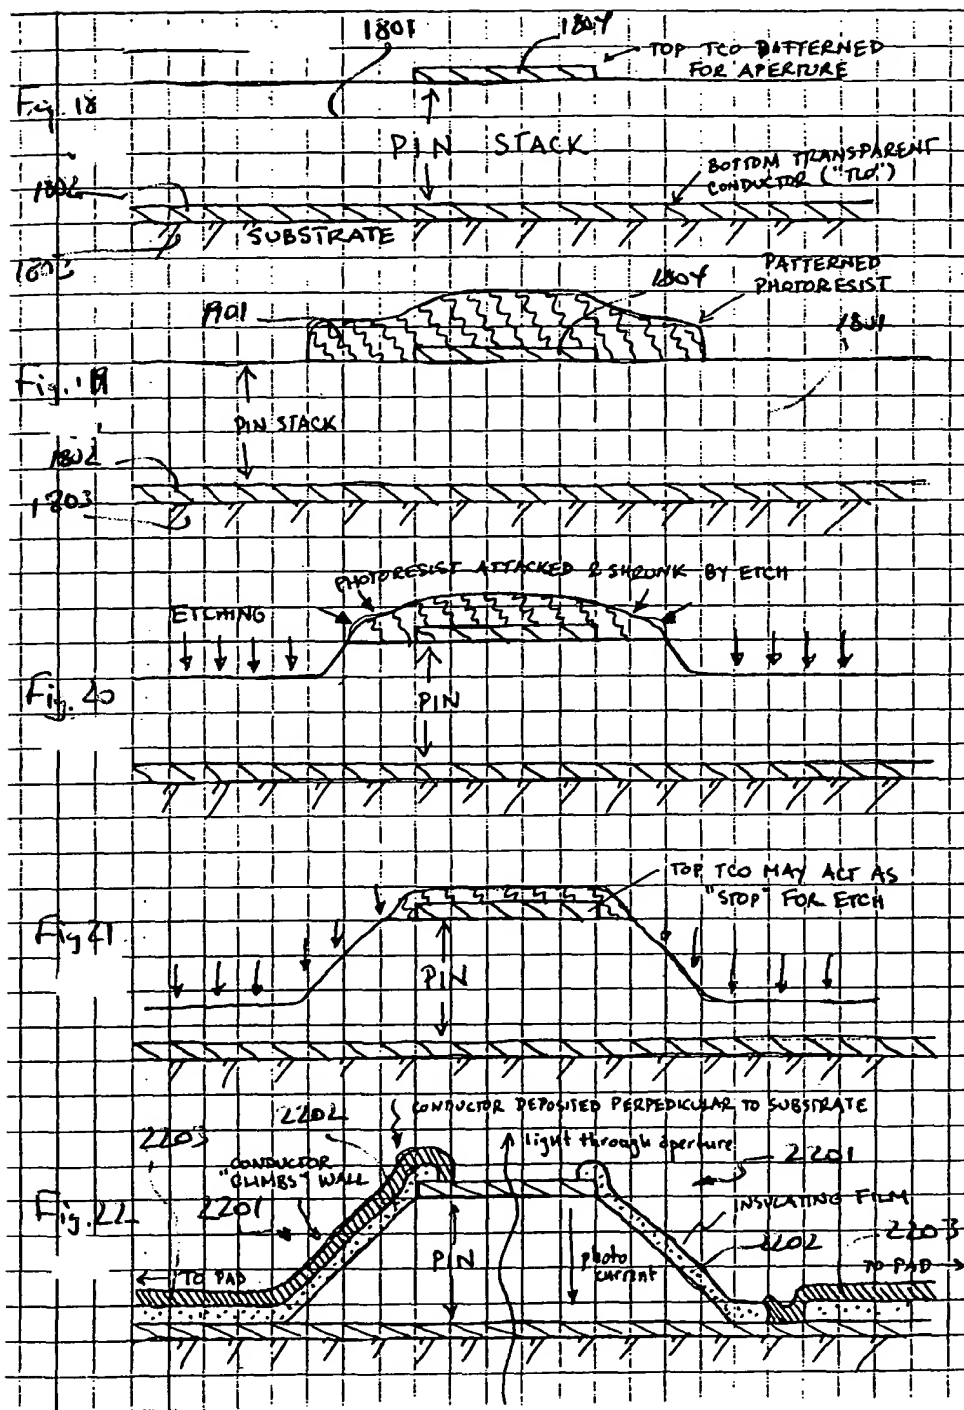 1801
1804
TOP TCO PATTERNED
FOR APERTURE
Fig. 18
PIN STACK
BOTTOM TRANSPARENT
CONDUCTOR ("TCO")
1802
SUBSTRATE
1804
PATTERNED
PHOTORESIST
1901
1801
Fig. 19
PIN STACK
1802
1803
PHOTORESIST ATTACKED & SHRUNK BY ETCH
ETCHING
Fig. 20
PIN
TOP TCO MAY ACT AS
"STOP" FOR ETCH
Fig. 21
PIN
2202
CONDUCTOR DEPOSITED PERPEDICULAR TO SUBSTRATE
2203
light through aperture
2201
"CONDUCTOR
"CLIMBS" WALL
2201
INSULATING FILM
Fig. 22
2202
2203
PIN
photo
current
TO PAD
TO PAD